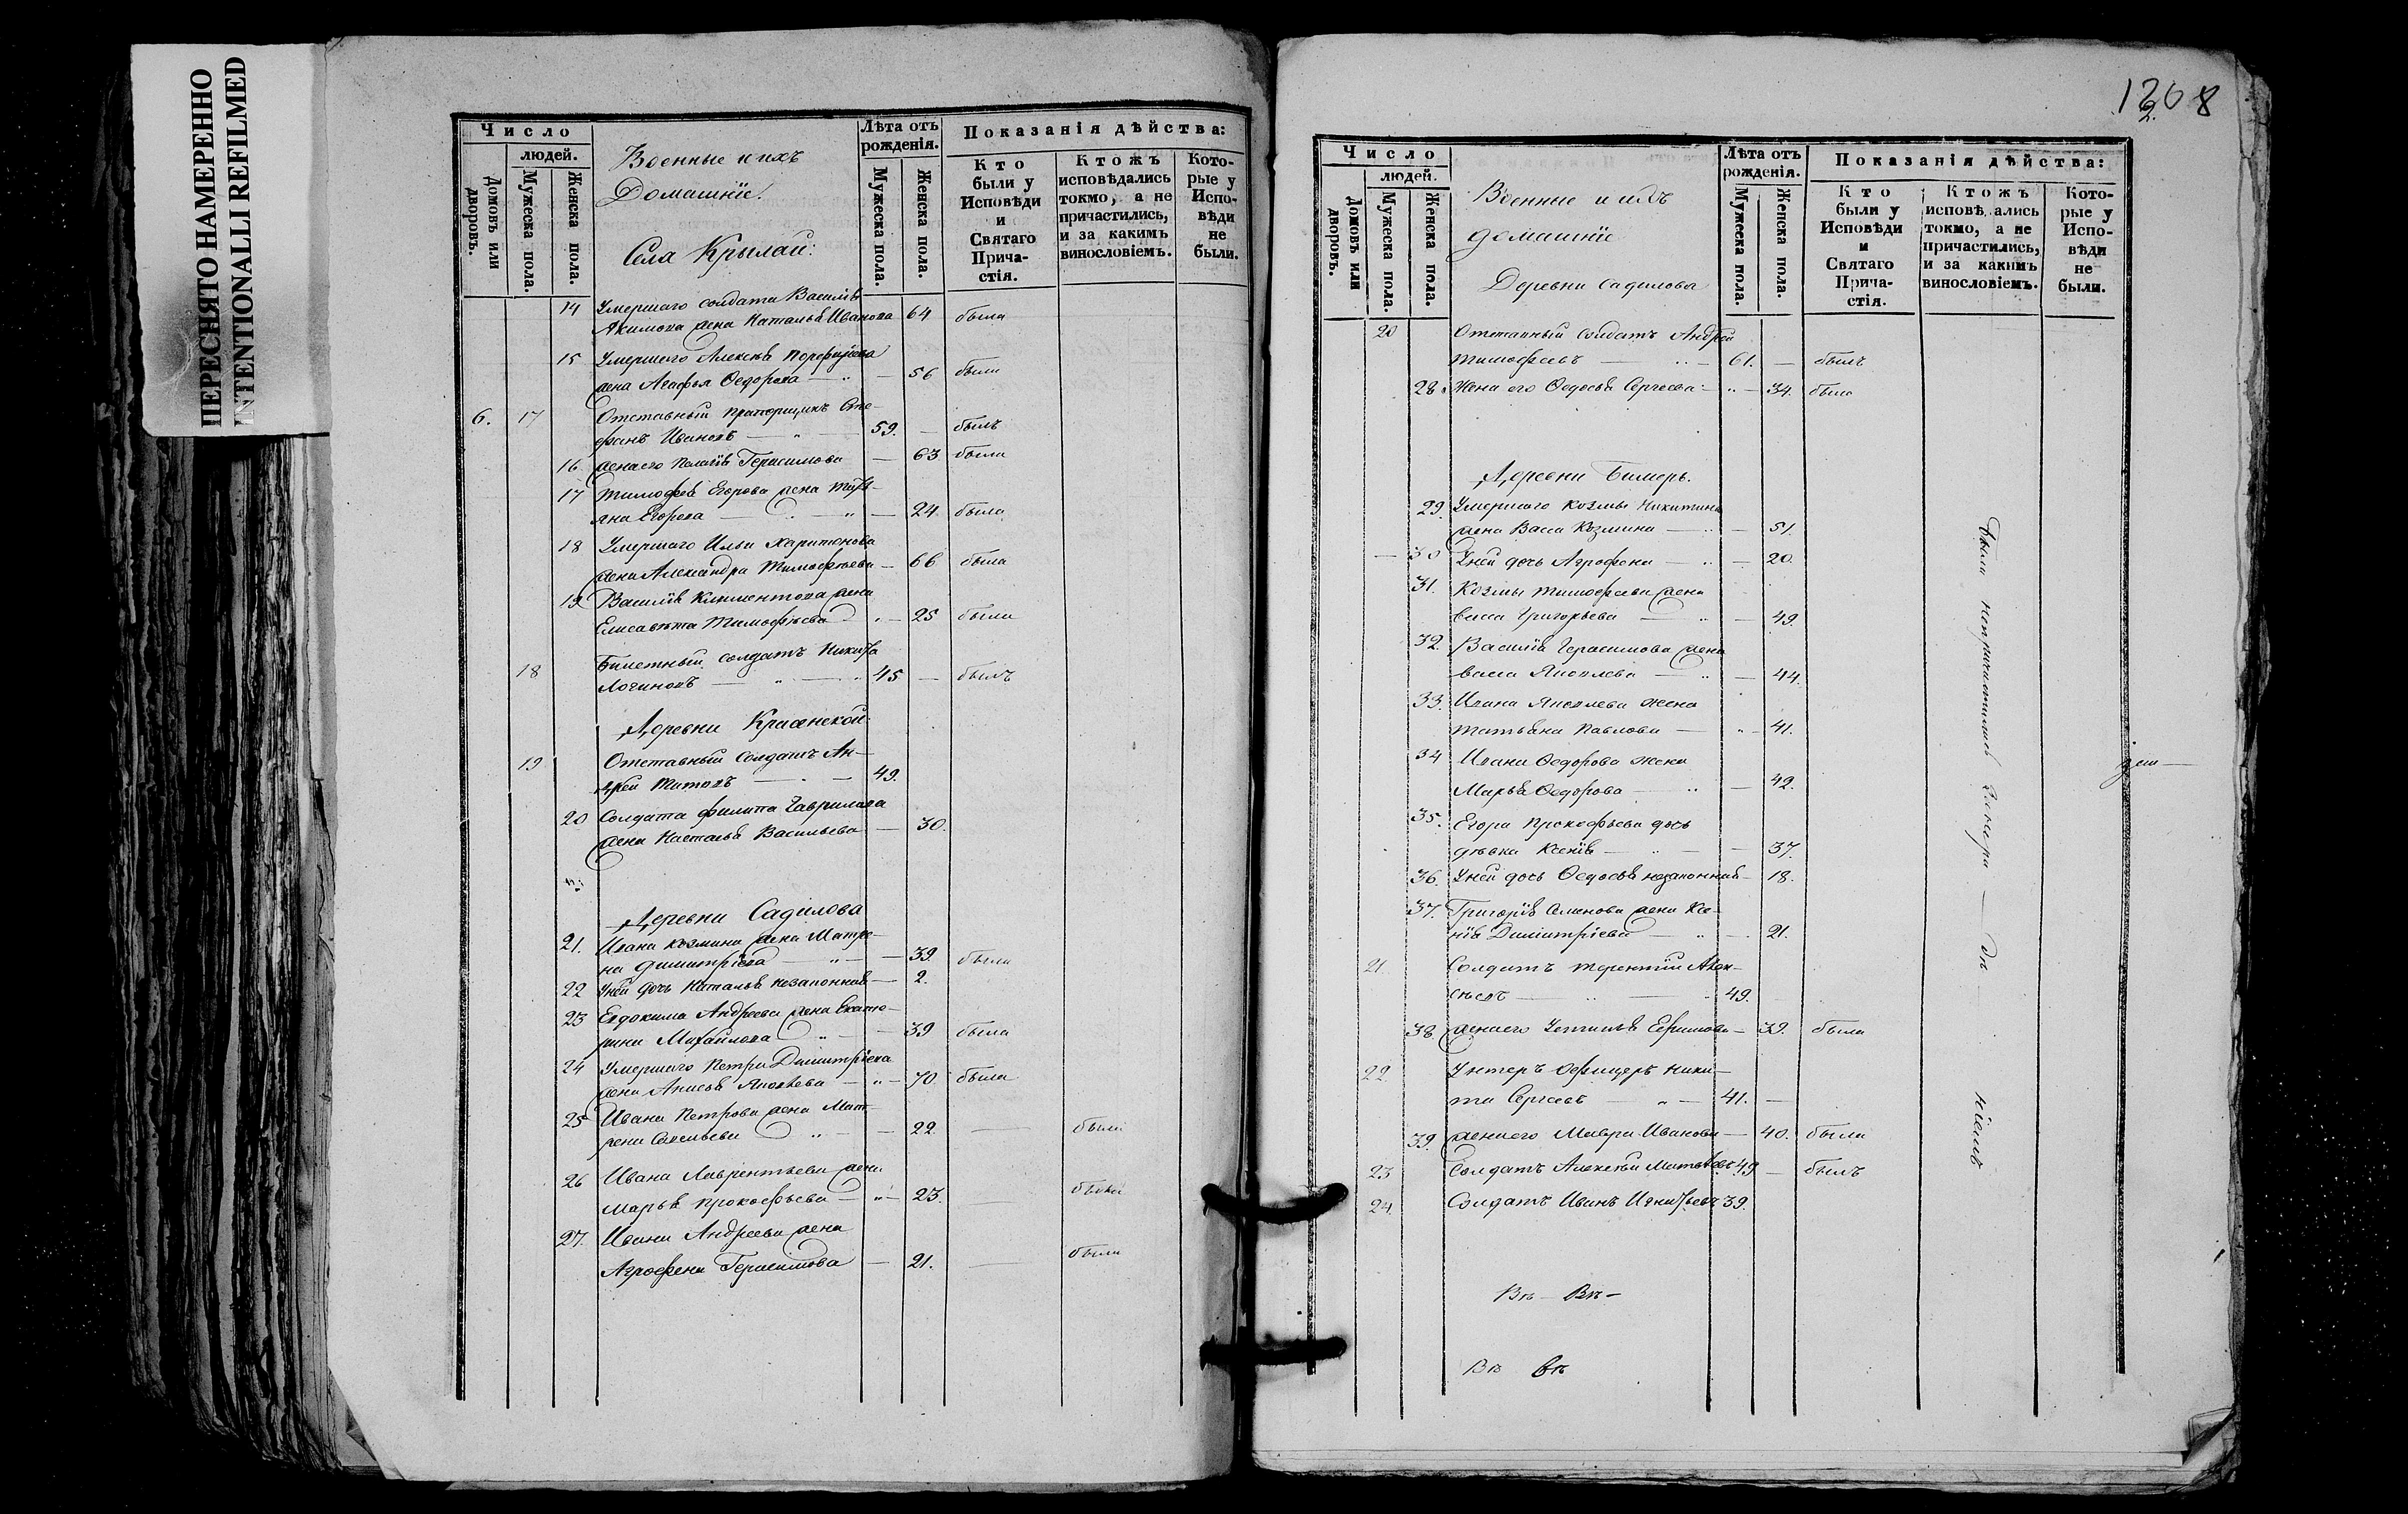 ПЕРЕСНЯТО НАМЕРЕННО
INTENTIONALLI REFILMED
Число
людей.
Домовъ или дворовъ.
Мужеска пола.
Женска пола.
Военные и ихъ
Домашнiе.
Села Крылай:
Лѣта отъ рожденiя.
Мужеска пола.
Женска пола.
Показанiя дѣйства:
Кто были у Исповѣди и Святаго Прича- стiя.
Ктожъ исповѣдались токмо, а не причастились, и за какимъ винословiемъ.
Кото- рые у Испо- вѣди не были.
14 Умершаго солдата Василiя
Акимова жена Наталья Иванова 64 была
15 Умершаго Алексѣя Порфирiева
жена Агафья Ѳедорова — 56 была
6. 17 Отставный прапорщикъ Сте-
фанъ Ивановъ — 59. — былъ
16 жена его Пелагiя Герасимова — 63 была
17 Тимофея Егорова жена Татi-
яна Егорова — 24 была
18 Умершаго Ильи Харитонова
жена Александра Тимофѣева — 66 была
19 Василiя Климентова жена
Елисавѣта Тимофѣева — 25 была
18 Билетный солдатъ Никита
Логиновъ — 45 — былъ
Деревни Красенской
19 Отставный Солдатъ Ан-
дрей Титовъ — 49.
20 Солдата Филипа Гаврилова
жена Настасья Васильева — 30.
Деревни Садилова
21. Ивана Козмина жена Матре-
на Димитрiева — 39. была
22 У ней дочь Наталья незаконная — 2.
23 Евдокима Андреева жена Екате-
рина Михайлова — 39 была
24 Умершаго Петра Димитрiева
жена Анисья Яковлева — 70. была
25 Ивана Петрова жена Мат-
рена Савельева — 22. — была
26 Ивана Лаврентьева жена
Марья Прокофьева — 23. была
27. Ивана Андреева жена
Агрофена Герасимова — 21. — была
1268
2.
Число
людей.
Домовъ или дворовъ.
Мужеска пола.
Женска пола.
Военные и ихъ
домашнiе
Деревни Садилова
Лѣта отъ рожденiя.
Мужеска пола.
Женска пола.
Показанiя дѣйства:
Кто были у Исповѣди и Святаго Прича- стiя.
Ктожъ исповѣ ались токмо, а не причастились, и за какимъ винословiемъ.
Кото- рые у Испо- вѣди не были.
20 Отставный Солдатъ Андрей
Тимофеевъ — 61. — былъ
28. Жена его Ѳедосья Сергеева — 34. была
Деревни Бимерь.
29. Умершаго Козмы Никитина
жена Васса Козмина — 51.
30 У ней дочь Агрофена — 20.
31. Козмы Тимофеева жена
Васса Григорьева — 49.
32. Василiя Герасимова жена
Васса Яковлева — 44.
33. Ивана Яковлева жена
Татьяна Павлова — 41.
34 Ивана Ѳедорова жена
Марья Ѳедорова — 42.
35. Егора Прокофьева дочь
дѣвка Ксенiя — 37.
36. У ней дочь Ѳедосья незаконная — 18.
37. Григорiя Семенова жена Ксе-
нiя Димитрiева — 21.
21. Солдатъ Терентiй Алек-
сѣевъ — 49.
38. жена его Устинья Ефимова — 39. была
22. Унтеръ Офицеръ Ники-
та Сергѣевъ — 41. —
39. жена его Мавра Иванова — 40. была
23 Солдатъ Алексѣй Матвѣевъ 49 — былъ
24. Солдатъ Иванъ Игнатьевъ 39.
Въ — Въ —
Въ въ